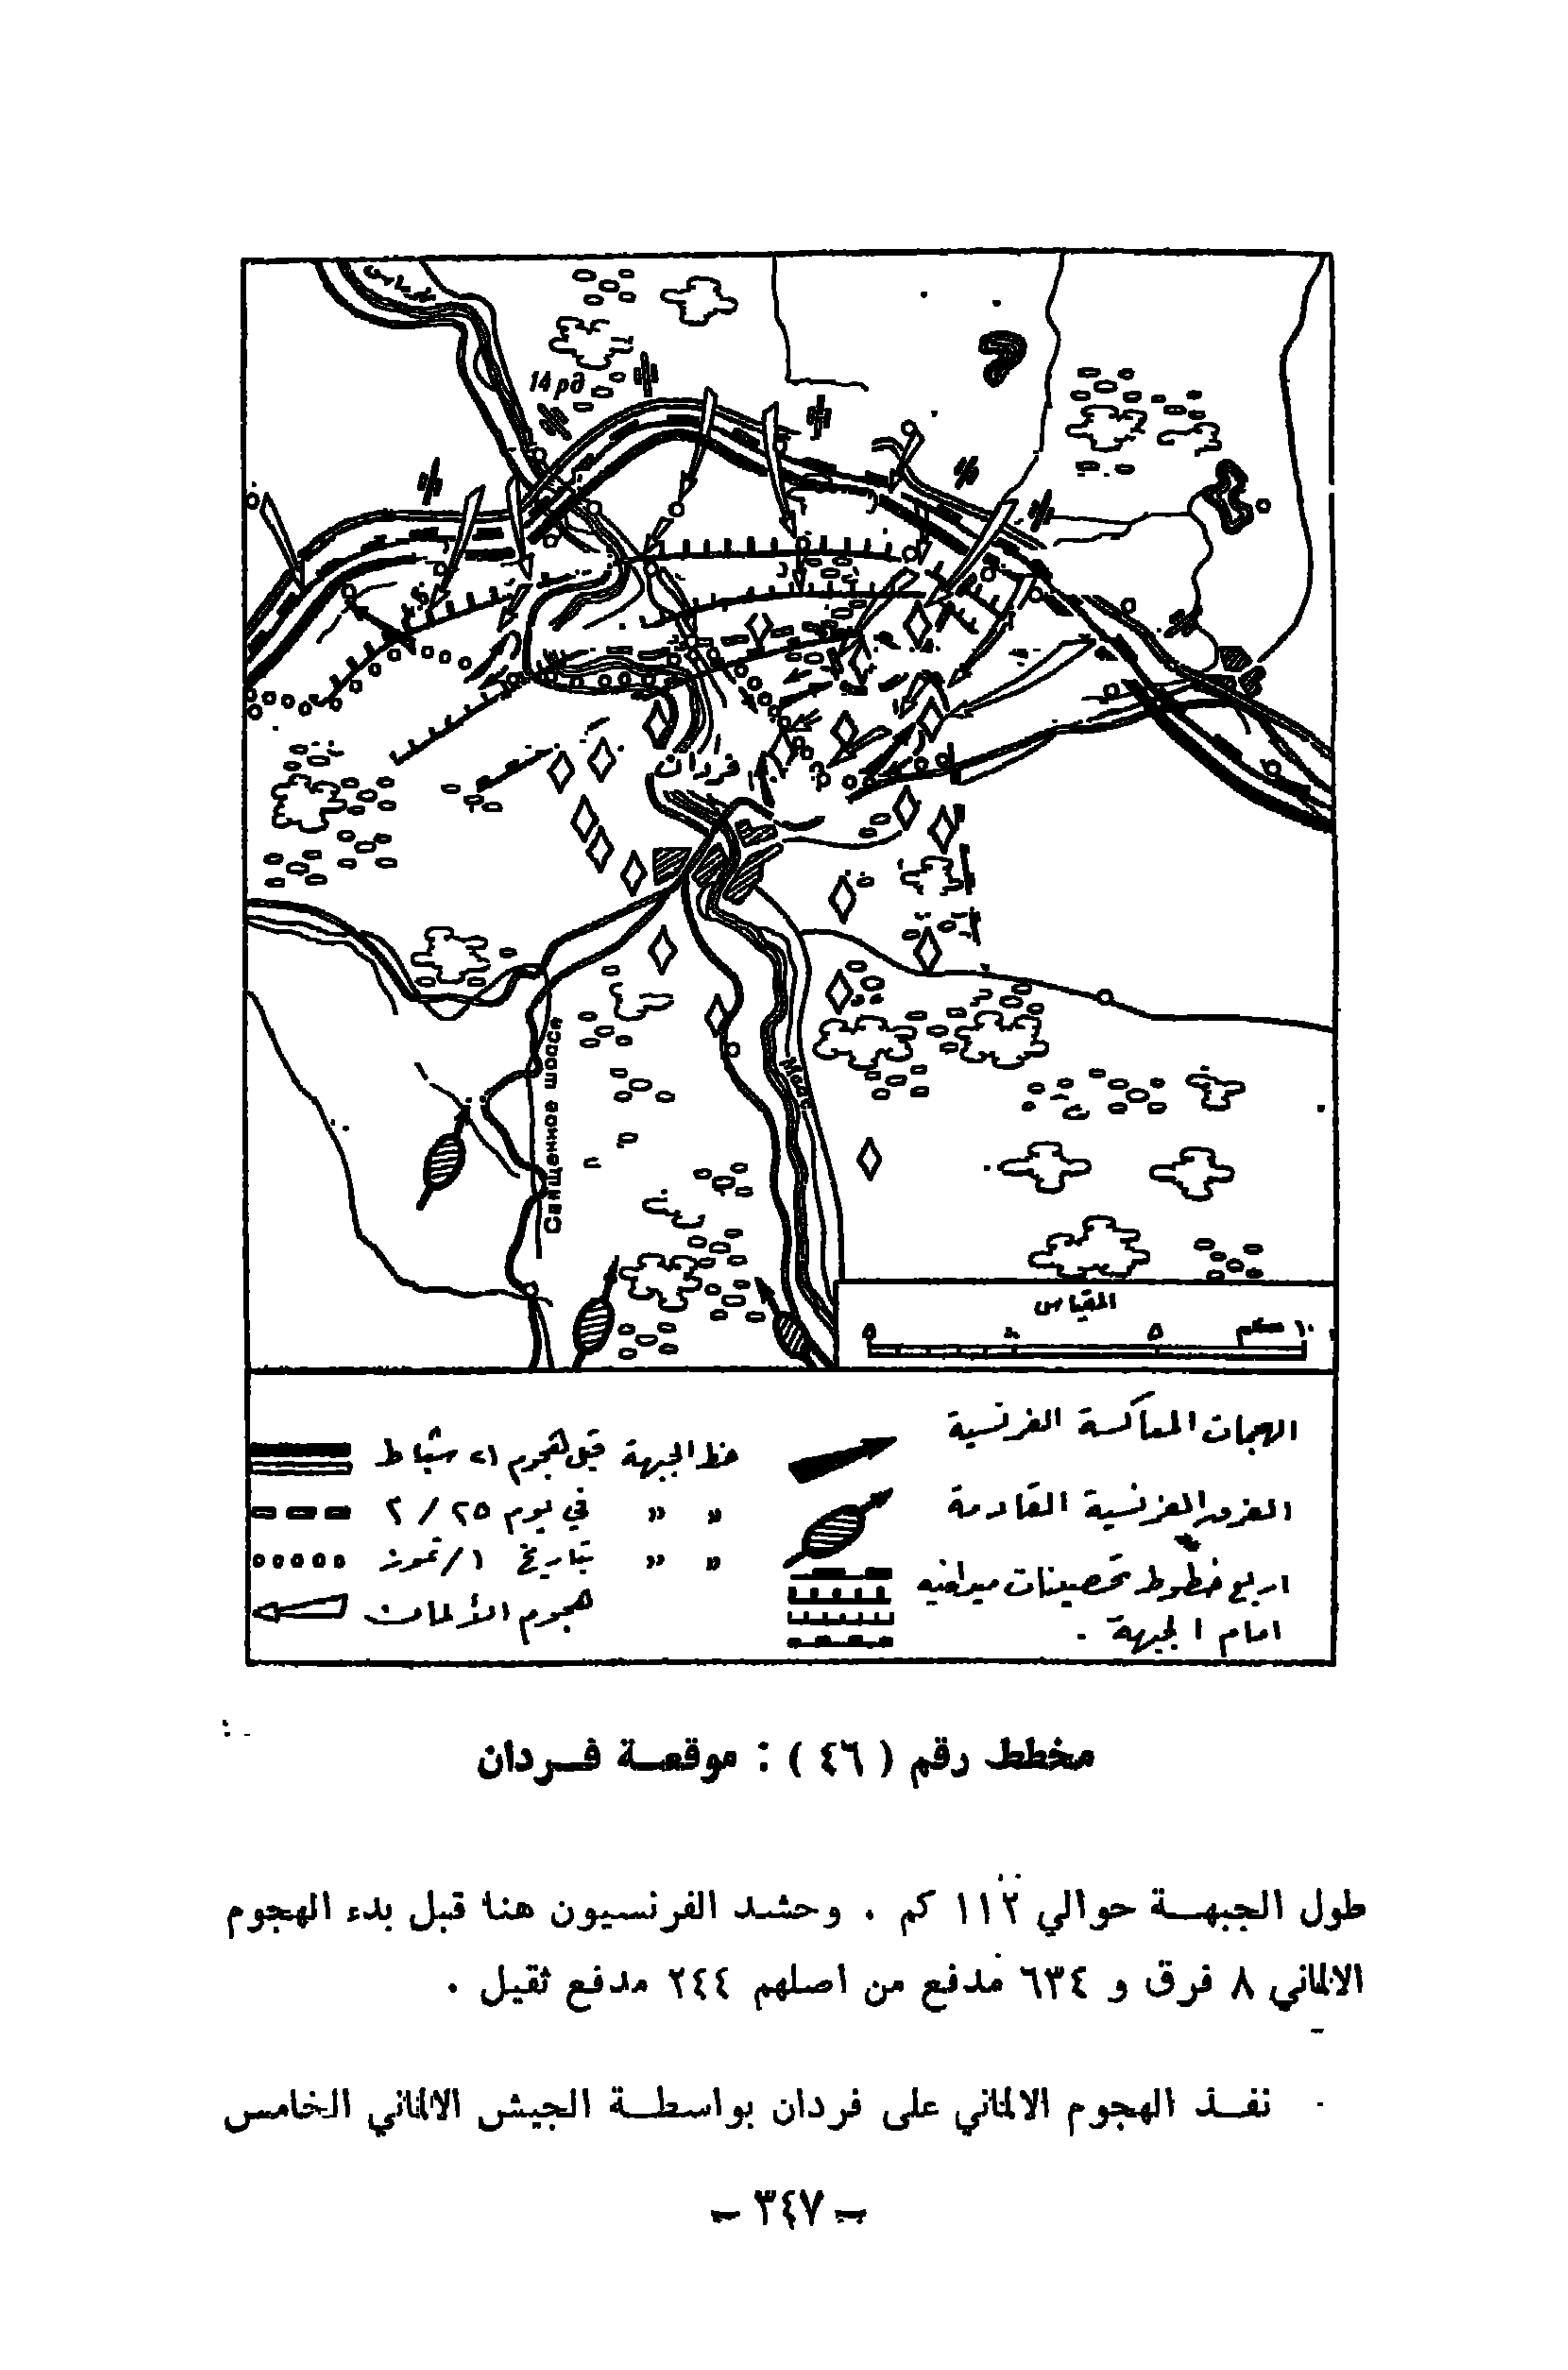 14 рд
فردان
Священное шоссе
Маас
المقياس
٥ ٥ ١٠ كم
الهجمات المعاكسة الفرنسية
الفرنسية القادمة
اربع خطوط تحصينات ميدانيه
امام الجبهة .
خط الجبهة قبل هجوم ٢١ شباط
» » في يوم ٢٥ / ٢
» » بتاريخ ١ / تموز
هجوم الألمان
مخطط رقم ( ٤٦ ) : موقعـة فـردان
طول الجبهـة حوالي ١١٢ كم . وحشد الفرنسيون هنا قبل بدء الهجوم
الالماني ٨ فرق و ٦٣٤ مدفع من اصلهم ٢٤٤ مدفع ثقيل .
نفـذ الهجوم الالماني على فردان بواسطـة الجيش الالماني الخامس
– ٣٤٧ –